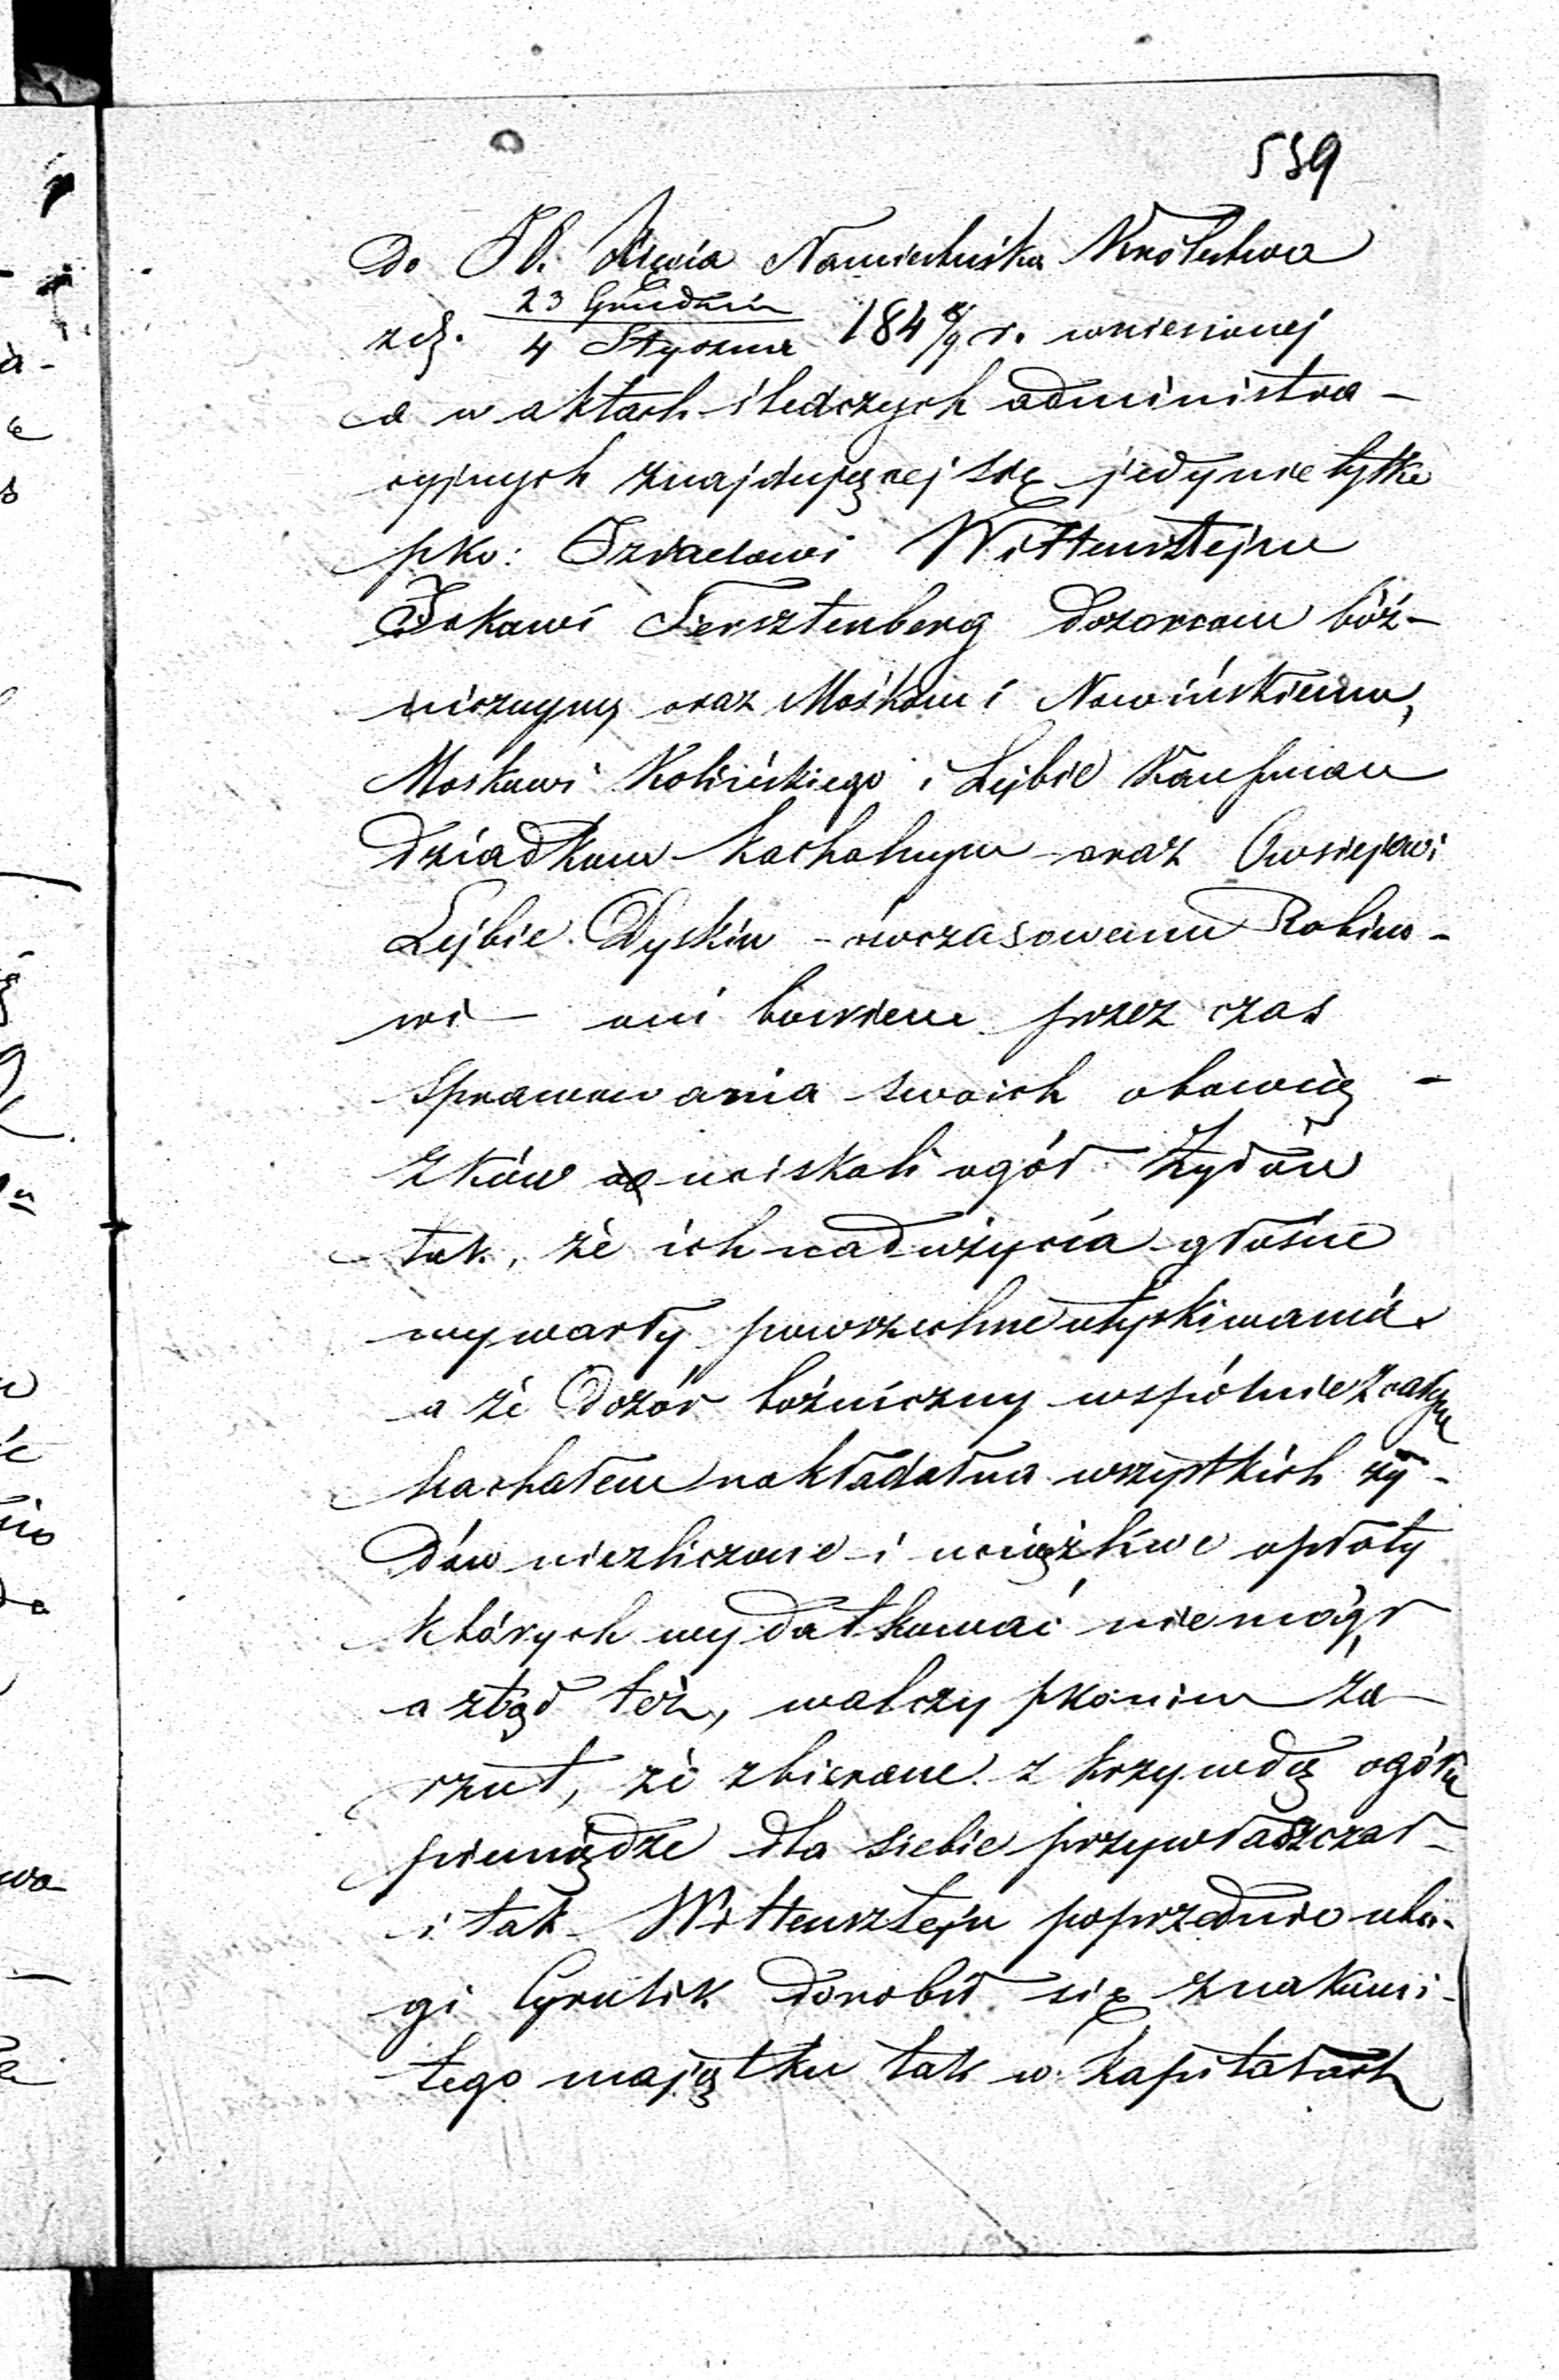 539
Do JO. Xięcia Namiestnika Królestwa
z d. 23 Grudnia / 4 Stycznia 184 8/9 r. wniesionej
a w aktach śledczych administra-
cyjnych znajdującej się jedynie tylko
pko: Izraelowi Wittensztejn
Ickowi Fersztenberg Dozorcom bóż-
nicznym oraz Mośkowi Nowińskiemu,
Moskowi Kolińskiego i Lejbie Kaufman
Dziadkom kachalnym oraz Owsiejowi
Lejbie Dyskin - ówczasowemu Rabino-
wi - oni bowiem przez czas
sprawowania swoich obowią-
zków uciskali ogół Żydów
tak, że ich nadużycia głośne
wywarły powszechne utyskiwania
a że Dozór bóżniczny wspólnie z całym
kachałem nakładał na wszystkich ży-
dów niezliczone i uciążliwe opłaty
których wydatkować nie mógł
a ztąd też, walczy pko nim za-
rzut, że zbierane z krzywdą ogółu
pieniądze dla siebie przywłaszczał
i tak Wittensztejn poprzednio ubo-
gi Cyrulik dorobił się znakomi-
tego majątku tak w kapitałach